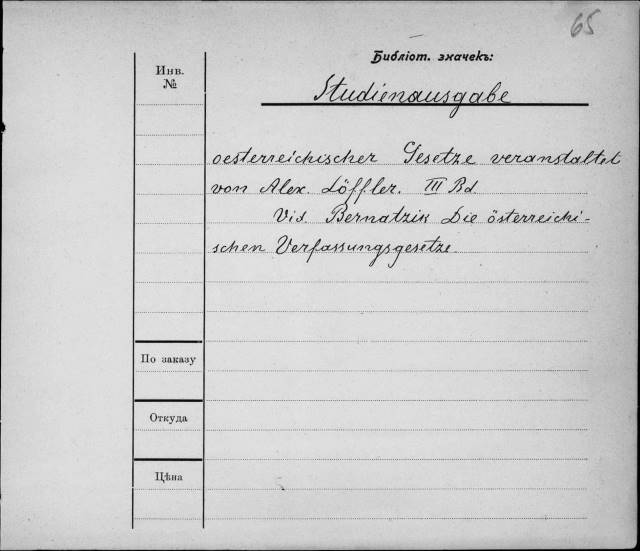 65
Библіот. значекъ:
Инв.
№
Studienausgabe
oesterreichischer Gesetze veranstaltet
von Alex. Löffler. III Bd
Vid. Bernatzik Die österreichi-
schen Verfassungsgesetze.
По заказу
Откуда
Цѣна